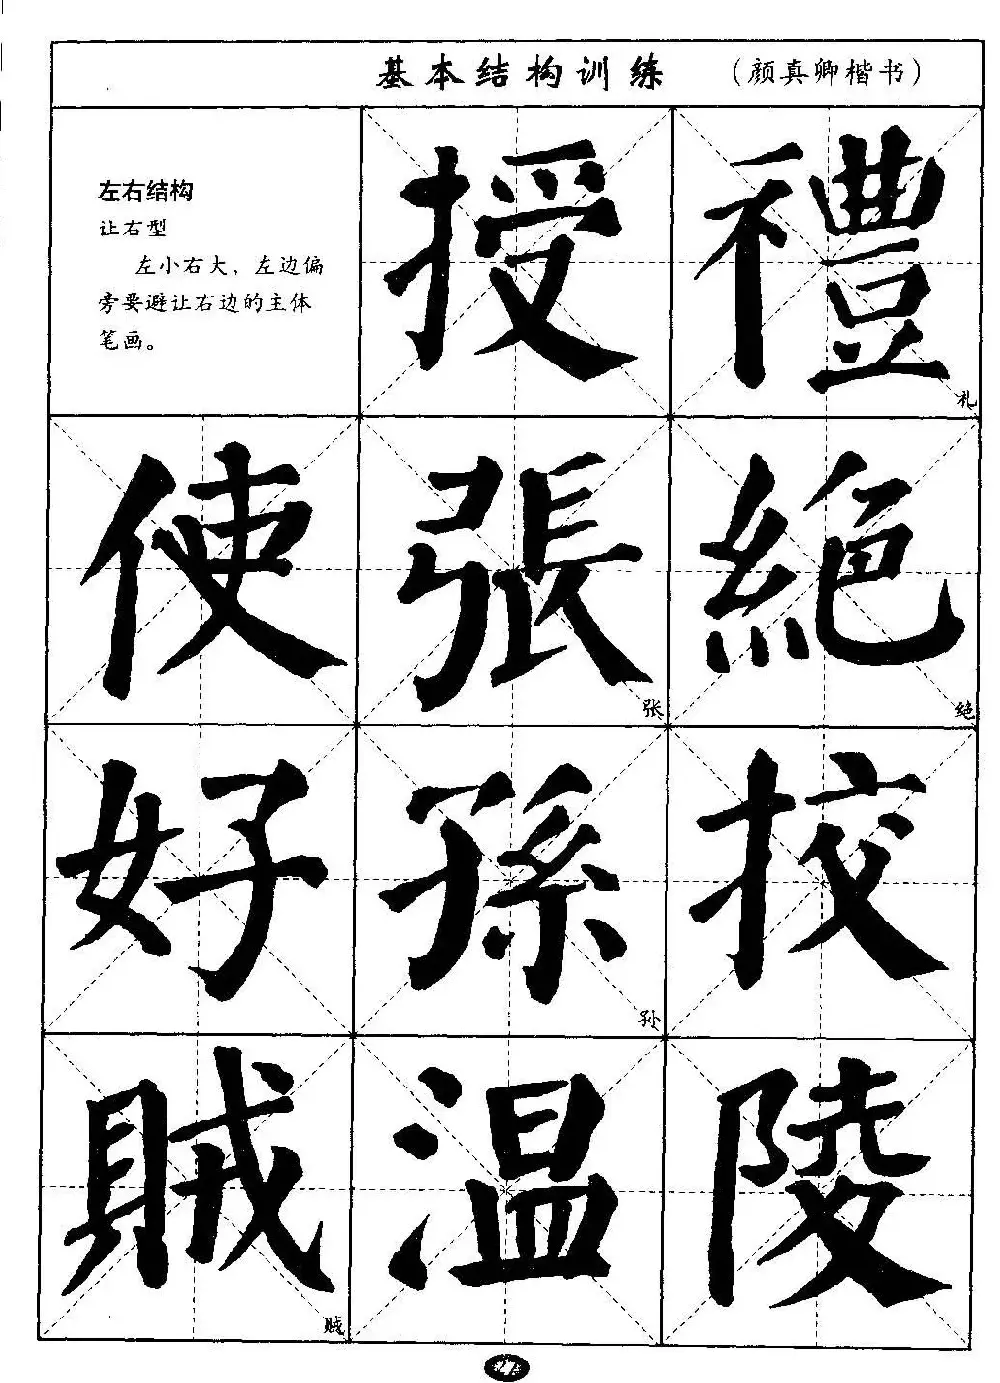 基本结构训练 （颜真卿楷书）
左右结构
让右型
左小右大，左边偏
旁要避让右边的主体
笔画。
授 禮 礼
使 張 张 絶 绝
好 孫 孙 挍
賊 贼 温 陵
27